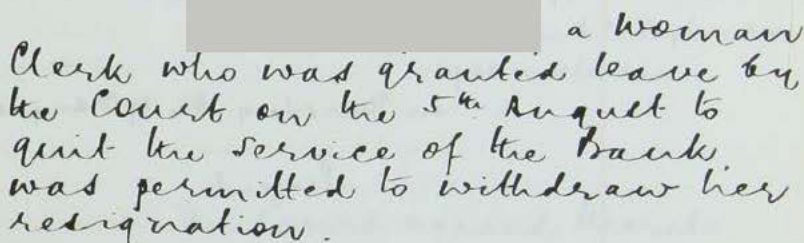 a Woman
Clerk who was granted leave by
the Court on the 5th August to
quit the Service of the Bank
was permitted to withdraw her
resignation.